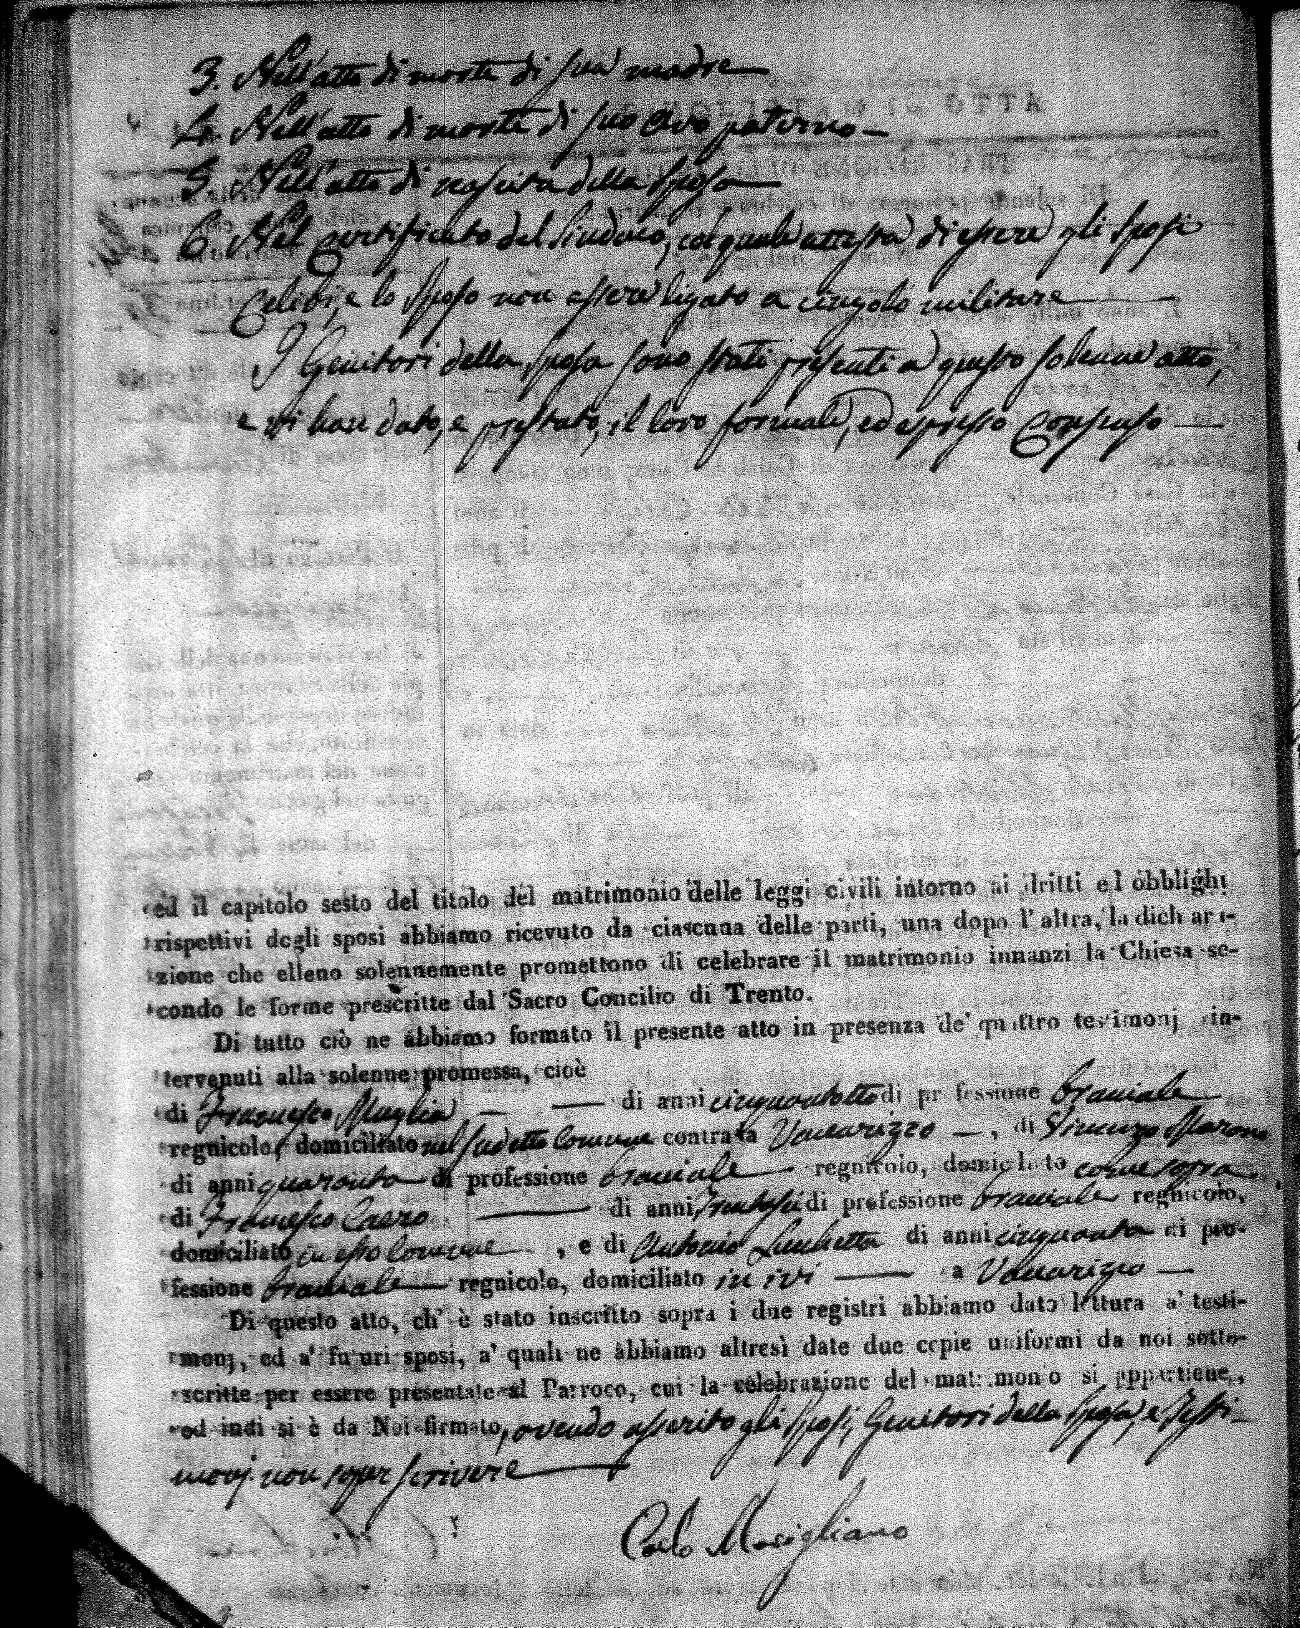 3. Nell'atto di morte di sua madre
4. Nell'atto di morte di suo avo paterno
5. Nell'atto di nascita della sposa
6. Nel Certificato del Sindaco, col quale attesta di essere gli sposi
Celibi, e lo sposo non essere ligato a cingolo militare
I Genitori della sposa sono stati presenti a questo solenne atto,
e vi han dato, e prestato, il loro formale, ed espresso Consenso
ed il capitolo sesto del titolo del matrimonio delle leggi civili intorno ai dritti ed obblighi
rispettivi degli sposi abbiamo ricevuto da ciascuna delle parti, una dopo l'altra, la dichara-
zione che elleno solennemente promettono di celebrare il matrimonio innanzi la Chiesa se-
condo le forme prescritte dal Sacro Concilio di Trento.
Di tutto ciò ne abbiamo formato il presente atto in presenza de' quattro testimonj in-
tervenuti alla solenne promessa, cioè
di Francesco di anni cinquantotto di professione braciale
regnicolo, domiciliato nel sudetto Comune contrada Vaccarizzo, di
di anni quaranta di professione braciale regnicolo, domiciliato come sopra
di Francesco di anni trentasei di professione braciale regnicolo,
domiciliato in esso Comune, e di Antonio di anni cinquanta di pro-
fessione braciale regnicolo, domiciliato in ivi a Vaccarizzo
Di questo atto, ch' è stato inscritto sopra i due registri abbiamo dato lettura a' testi-
monj, ed a' futuri sposi, a' quali ne abbiamo altresì date due copie uniformi da noi sotto-
scritte per essere presentate al Parroco, cui la celebrazione del matrimonio si appartiene,
ed indi si è da Noi firmato, avendo asserito gli sposi, Genitori della sposa, e testi-
monj non saper scrivere
Carlo Marigliano